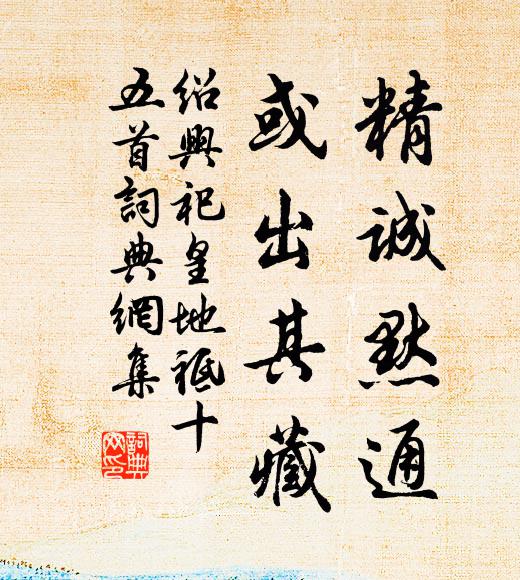 精誠默通
或出其藏
紹興祀皇地祗十
五首詞典網集
詞典
网印